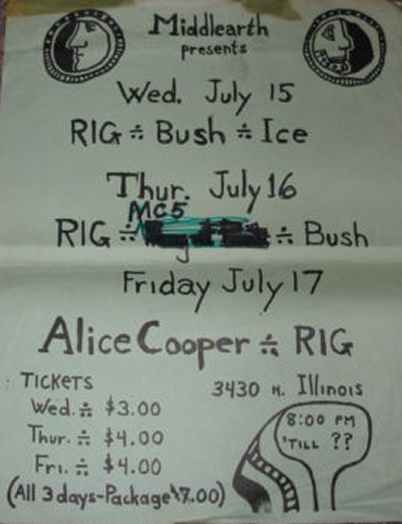 Middlearth
presents
Wed. July 15
RIG ÷ Bush ÷ Ice
Thur. July 16
MC5
RIG ÷ ÷ Bush
Friday July 17
Alice Cooper ÷ RIG
TICKETS
Wed. ÷ $3.00
Thur. ÷ $4.00
Fri. ÷ $4.00
(All 3 days-Package $7.00)
3430 N. Illinois
8:00 PM
'TILL ??